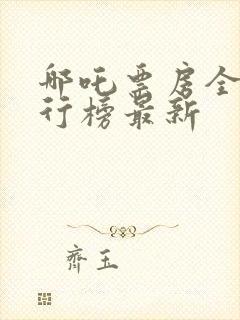 邸吒票房全
行榜最新
齊玉